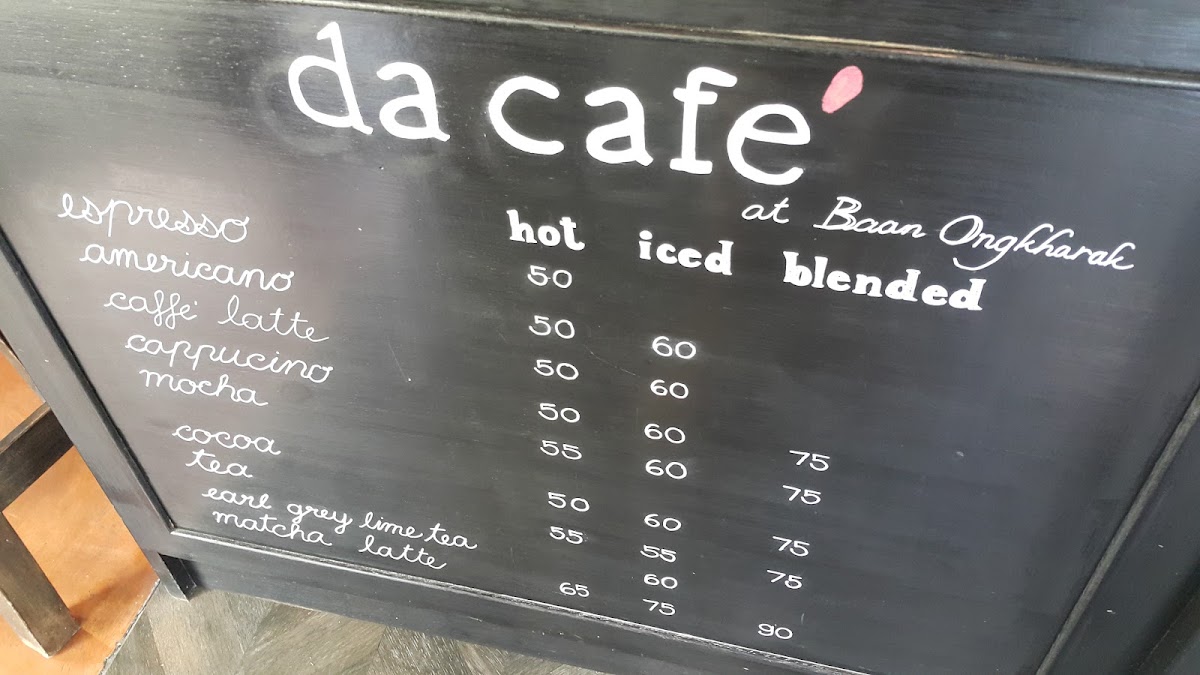 da cafe'
at Baan Ongkharak
hot iced blended
espresso 50
americano 50 60
caffe' latte 50 60
cappucino 50 60 75
mocha 55 60 75
cocoa 50 60 75
tea 55 55 75
earl grey lime tea 60
matcha latte 65 75 90